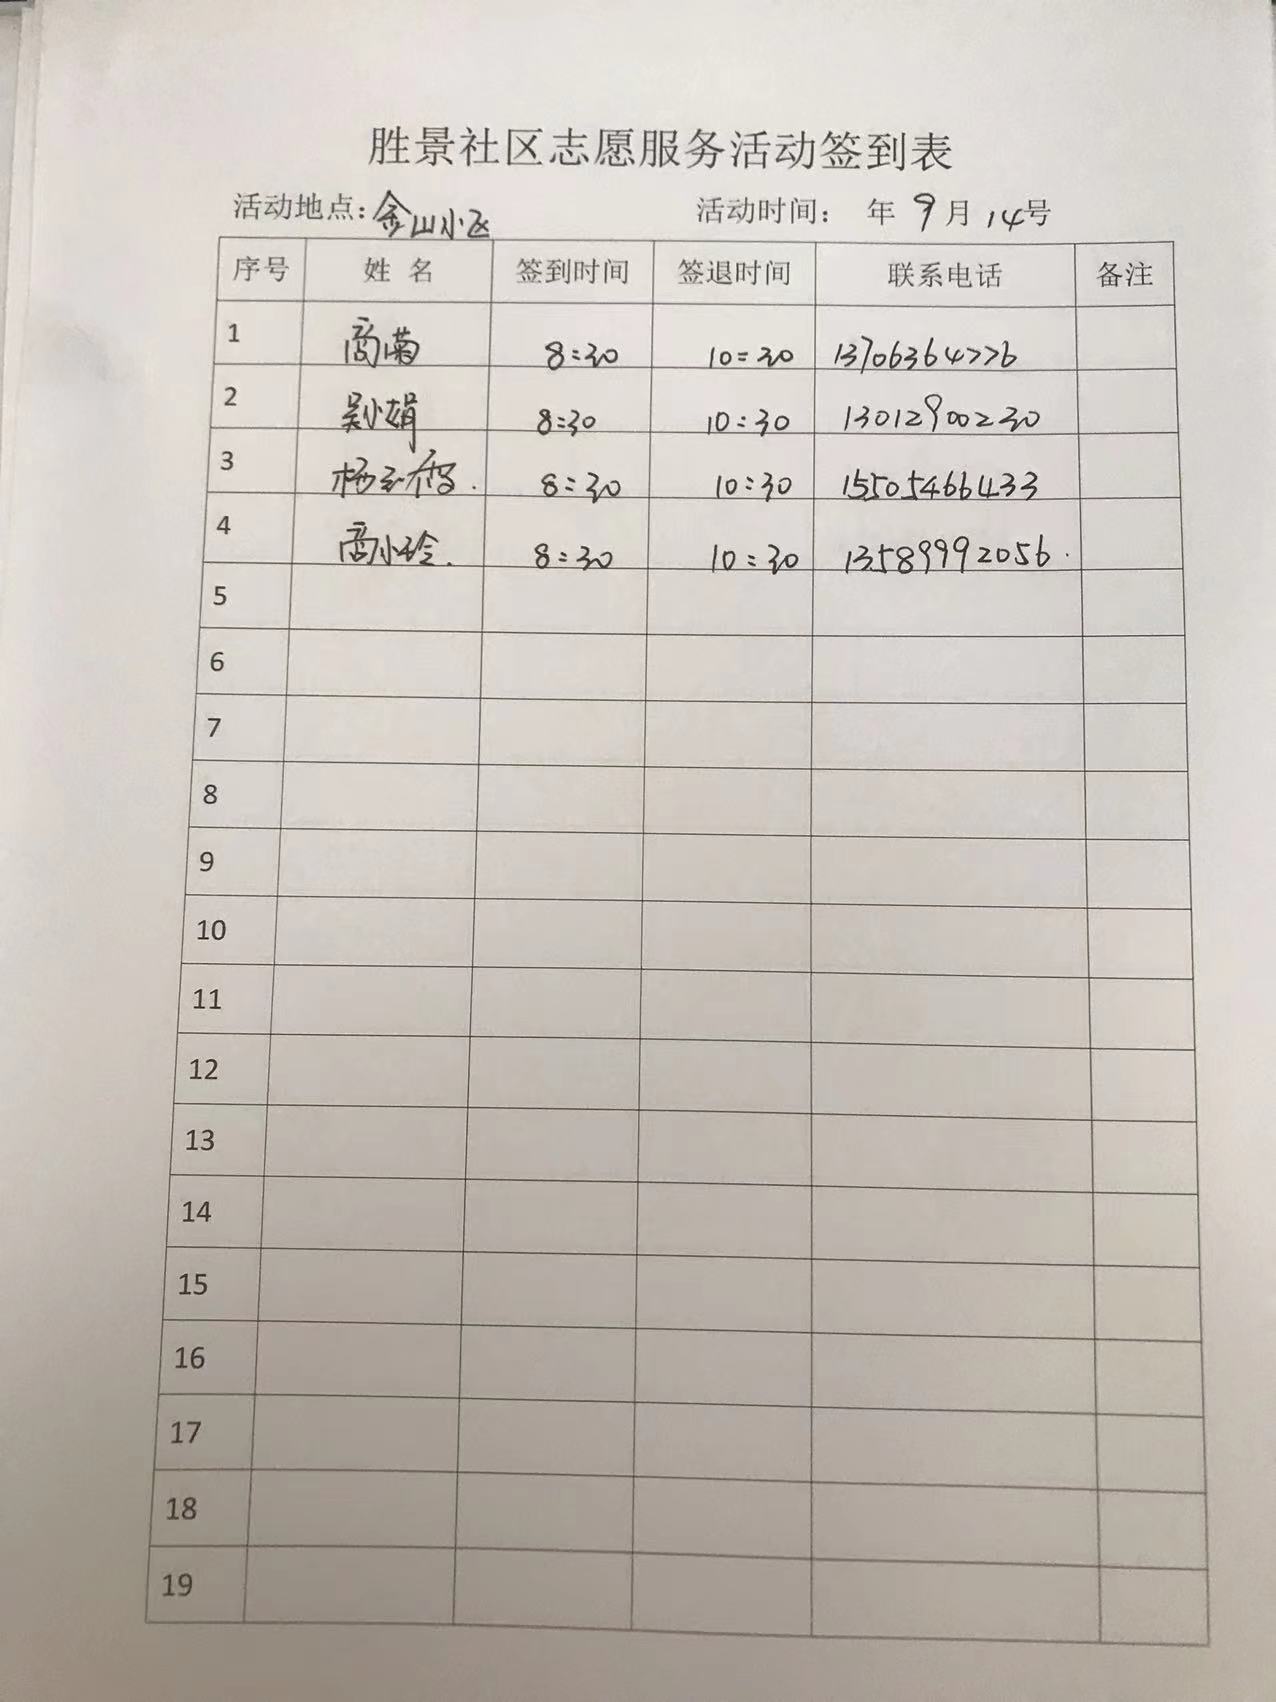 胜景社区志愿服务活动签到表
活动地点:金山小区 活动时间: 年 9月 14号
序号 姓 名 签到时间 签退时间 联系电话 备注
1 高菊 8:30 10:30 13706364776
2 吴小娟 8:30 10:30 13012900230
3 杨玉香. 8:30 10:30 15505466433
4 高小玲. 8:30 10:30 13589992056.
5
6
7
8
9
10
11
12
13
14
15
16
17
18
19